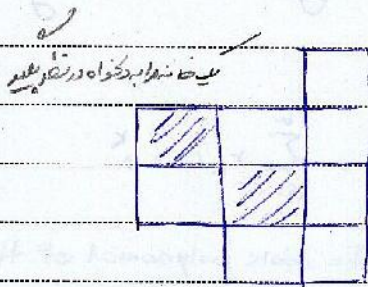 یک خانه را به دلخواه در نظر بگیرید